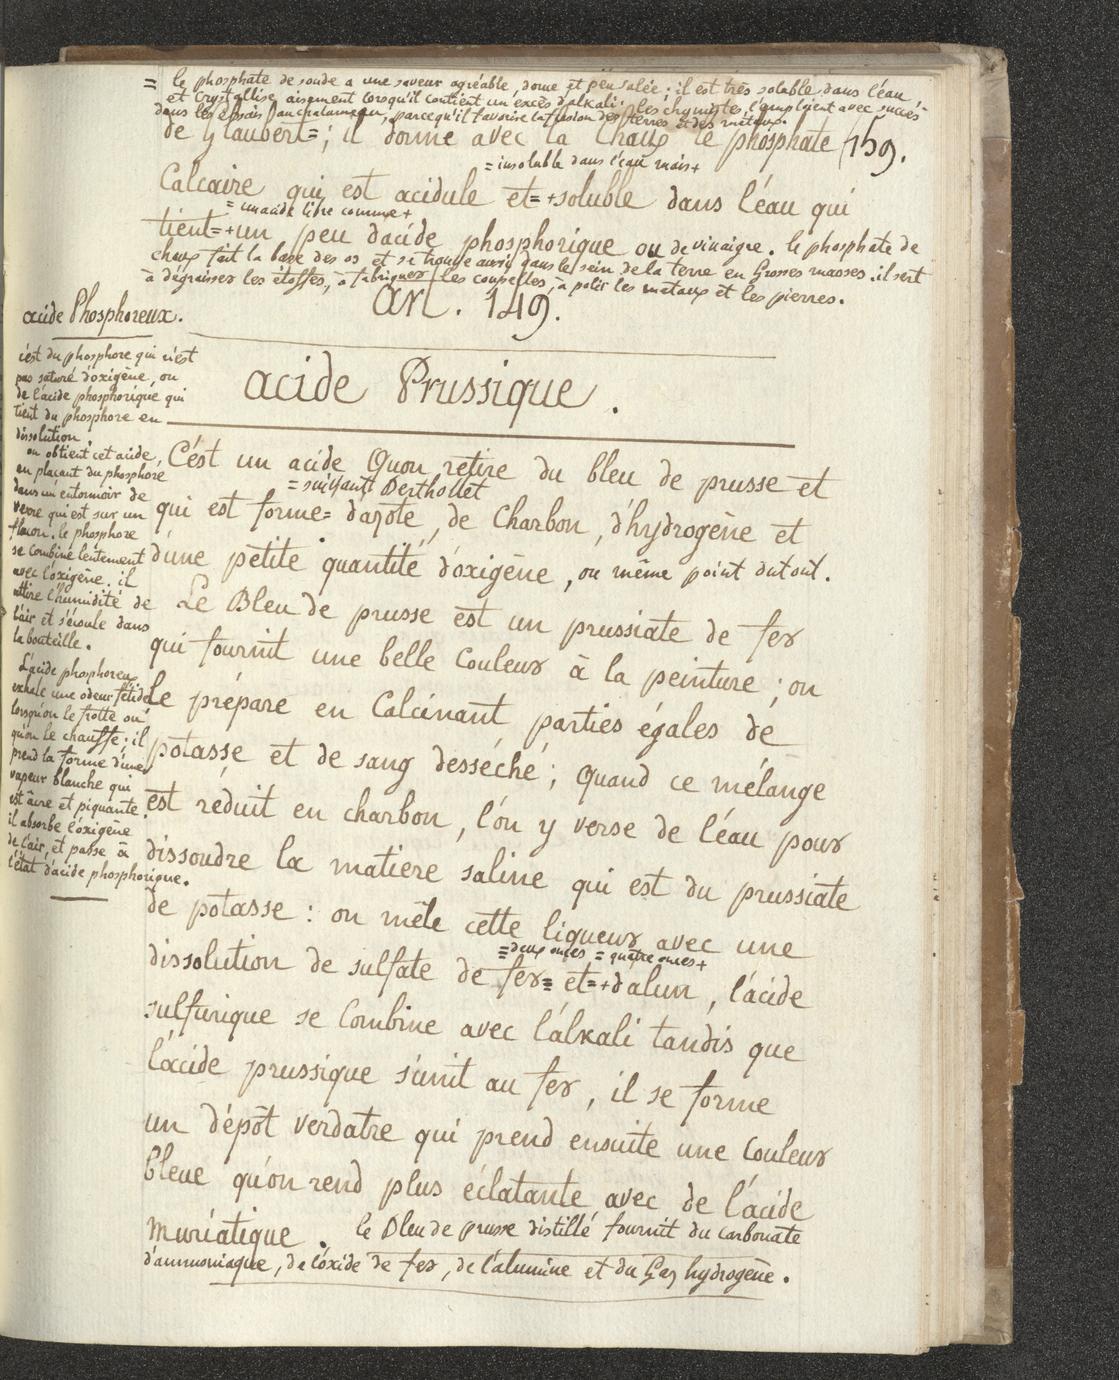 = le phosphate de soude a une saveur agréable, douce et peu salée; il est très soluble dans l'éau
et Crystallise aisement lorsqu'il contient un excès d'alkali. les chymistes l'emploient avec succès
dans les essais au chalumeau, parcequ'il favorise la fusion des terres et des métaux.
de glauber=; il donne avec la Chaux le phosphate (159.
= insoluble dans l'éau mais+
Calcaire qui est acidule et=+soluble dans l'éau qui
= un acide libre comme+
tient=+un peu d'acide phosphorique ou de vinaigre. le phosphate de
chaux fait la base des os et se trouve aussi dans le sein de la terre en Grosses masses. il sert
à dégraisser les étoffes, à fabriquer les coupelles, à polir les métaux et les pierres.
art. 149.
acide Phosphoreux.
c'est du phosphore qui n'est
pas saturé d'oxigène, ou
de l'acide phosphorique qui
tient du phosphore en
dissolution.
on obtient cet acide,
en plaçant du phosphore
dans un entonnoir de
verre qui est sur un
flacon. le phosphore
se combine lentement
avec l'oxigène. il
attire l'humidité de
l'air et s'écoule dans
la bouteille.
L'acide phosphoreux
exhale une odeur fétide
lorsqu'on le frotte ou
qu'on le chauffe; il
prend la forme d'une
vapeur blanche qui
est âcre et piquante.
il absorbe l'oxigène
de l'air, et passe à
l'état d'acide phosphorique.
acide Prussique.
C'ést un acide Quon retire du bleu de prusse et
= suivant Berthollet
qui est formé= d'azote, de Charbon, d'hydrogène et
d'une petite quantité d'oxigène, ou même point du tout.
Le Bleu de prusse est un prussiate de fer
qui fournit une belle Couleur à la peinture; on
le prépare en Calcinant parties égales de
potasse et de sang desséché; Quand ce mélange
est réduit en charbon, l'on y verse de l'éau pour
dissoudre la matiere saline qui est du prussiate
de potasse: on mêle cette liqueur avec une
= deux onces = quatre onces+
dissolution de sulfate de fer= et=+d'alun, l'acide
sulfurique se Combine avec l'alkali tandis que
l'acide prussique s'unit au fer, il se forme
un dépot verdatre qui prend ensuite une Couleur
bleue qu'on rend plus éclatante avec de l'acide
muriatique. le Bleu de prusse distillé fournit du carbonate
d'ammoniaque, de l'oxide de fer, de l'alumine et du Gaz hydrogène.